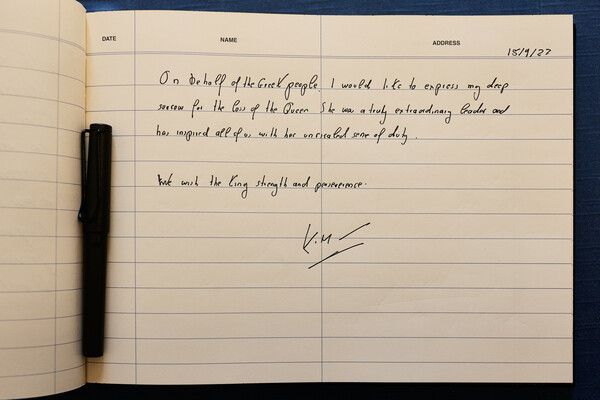 DATE NAME ADDRESS
15/9/22
On behalf of the Greek people I would like to express my deep
sorrow for the loss of the Queen. She was a truly extraordinary leader and
has inspired all of us with her unrivaled sense of duty.
We wish the King strength and perseverence.
K.M